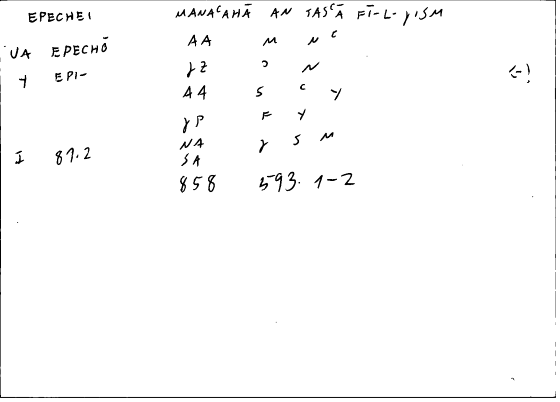 EPECHEI MANAᶜAHĀ AN TASᶜĀ FĪ-L-γISM
UA EPECHŌ AA M Nᶜ
γZ Ɔ N
Y EPI- (-)
AA S C Y
γP F Y
NA γ S M
I 87.2 SA
858 593. 1-2